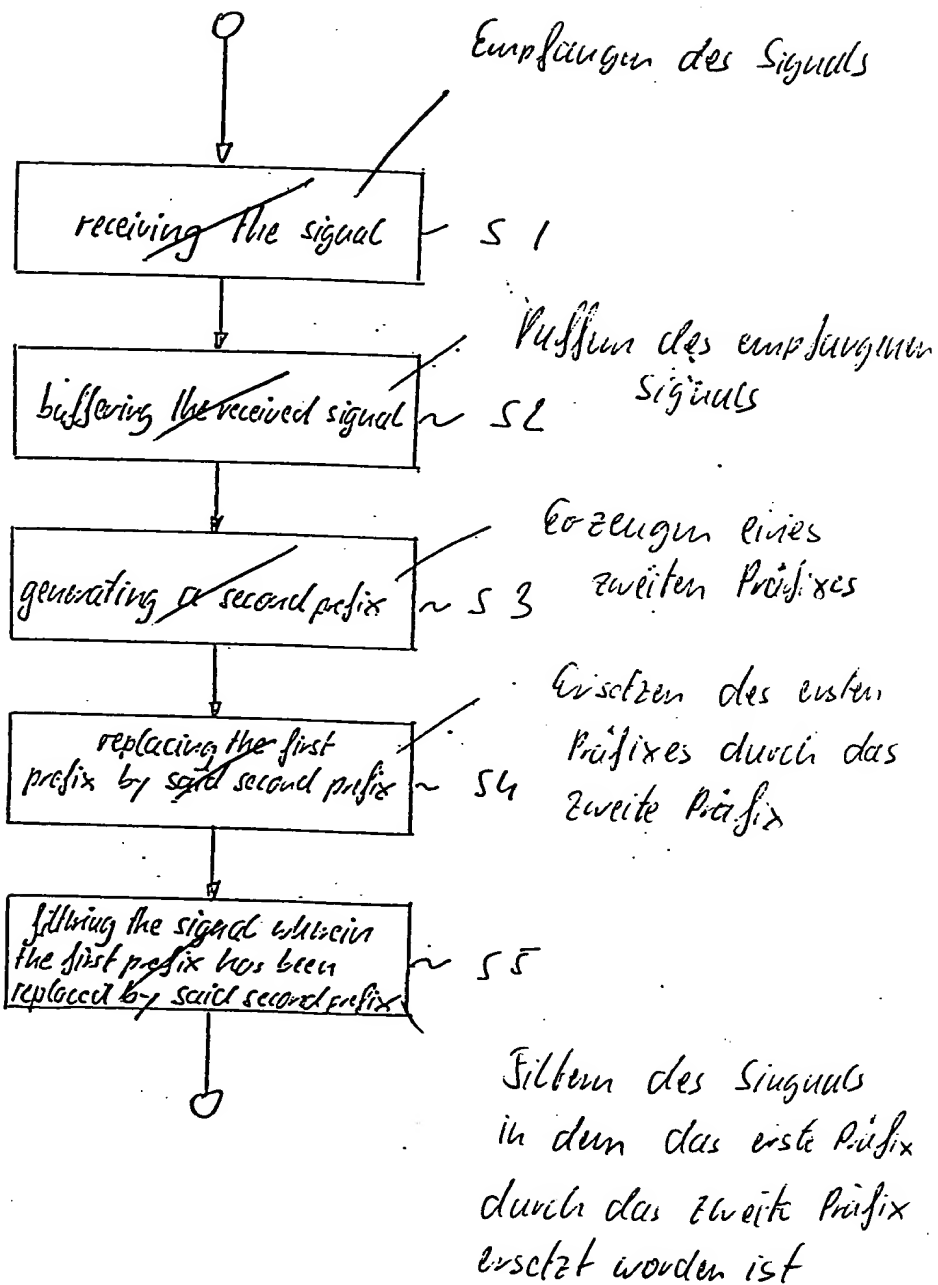 Empfangen des Signals
receiving the signal
S1
Puffern des empfangenen
Signals
buffering the received signal
S2
Erzeugen eines
zweiten Präfixes
generating a second prefix
S3
Ersetzen des ersten
Präfixes durch das
zweite Präfix
replacing the first
prefix by said second prefix
S4
filtering the signal wherein
the first prefix has been
replaced by said second prefix
S5
Filtern des Singnals
in dem das erste Präfix
durch das zweite Präfix
ersetzt worden ist